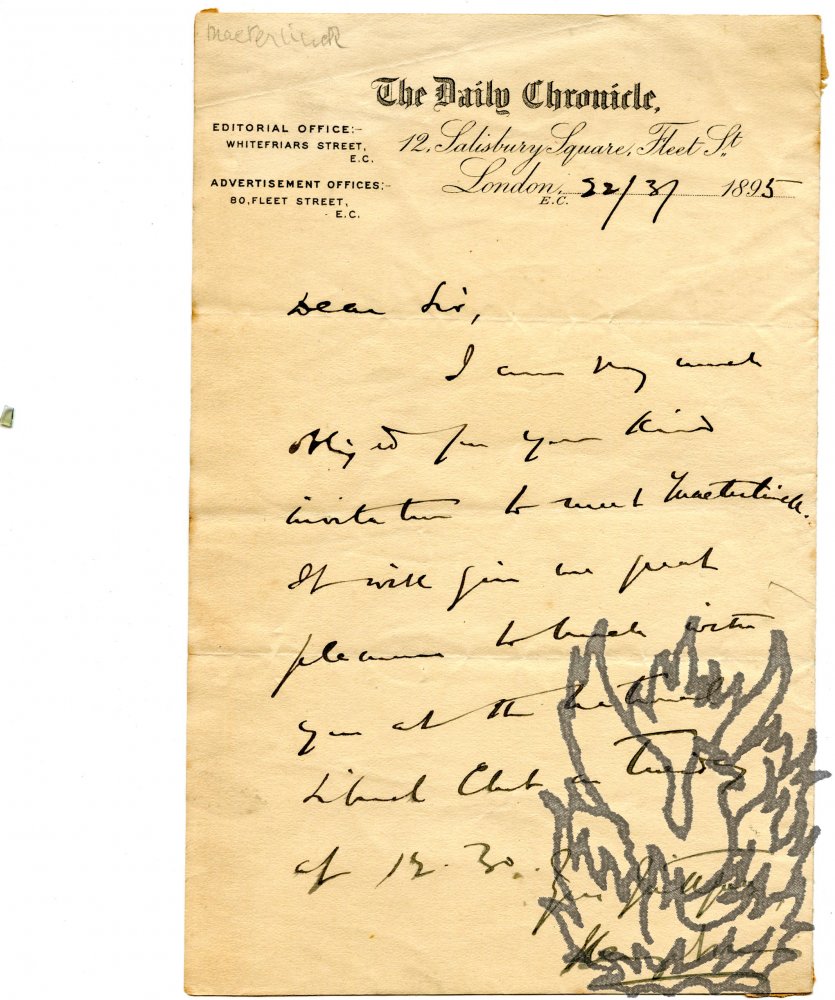 Maeterlinck
The Daily Chronicle,
EDITORIAL OFFICE:-
WHITEFRIARS STREET,
E.C.
12, Salisbury Square, Fleet St.
ADVERTISEMENT OFFICES:-
80, FLEET STREET,
E.C.
London, E.C. 22/3/ 1895
Dear Sir,
I am very much
obliged for your kind
invitation to meet Maeterlinck.
It will give me great
pleasure to lunch with
you at the National
Liberal Club on Tuesday
at 12.30.